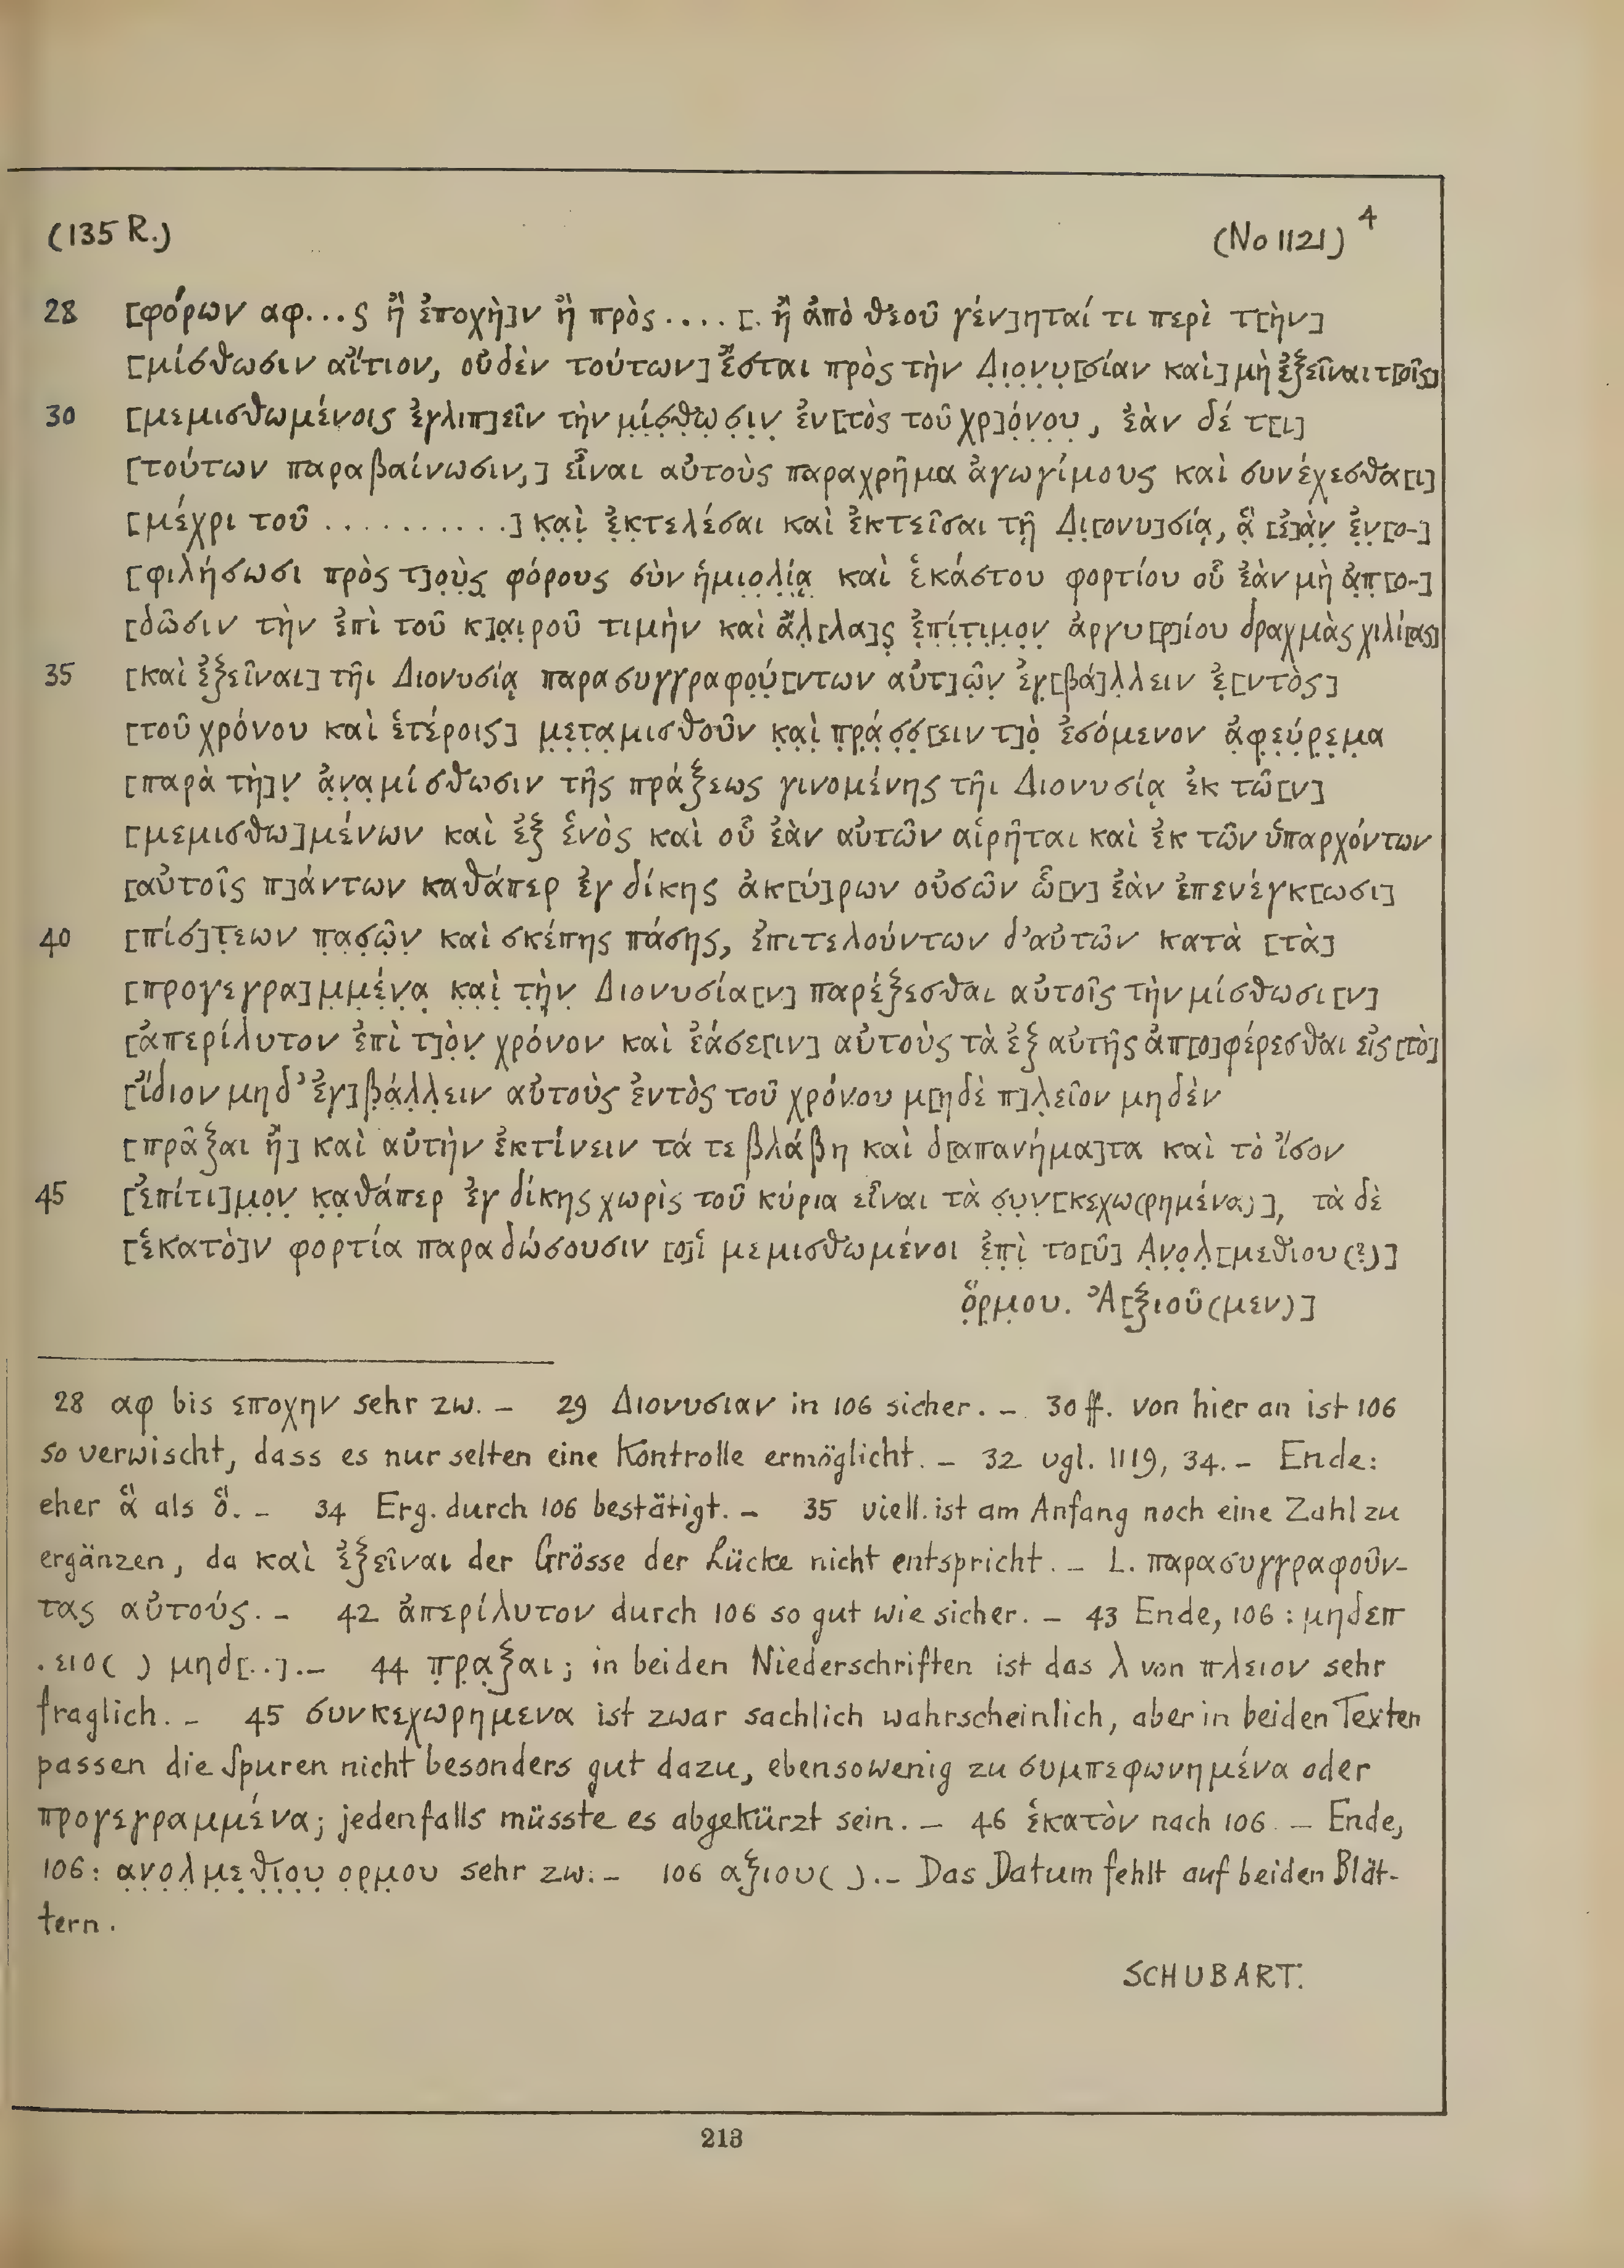 (135 R.) (No 1121) 4
28 [φόρων αφ...ς ἢ ἐποχὴ]ν ἢ πρὸς .... [. ἢ ἀπὸ θεοῦ γέν]ηταί τι περὶ τ[ὴν]
[μίσθωσιν αἴτιον, οὐδὲν τούτων] ἔσται πρὸς τὴν Δ̣ι̣ο̣ν̣υ̣[σίαν καὶ] μὴ ἐξεῖναι τ[οῖς]
30 [μεμισθωμένοις ἐγλιπ]εῖν τὴν μ̣ί̣σ̣θ̣ω̣σ̣ι̣ν̣ ἐν[τὸς τοῦ χρ]ό̣ν̣ο̣υ̣, ἐὰν δέ τ[ι]
[τούτων παραβαίνωσιν,] εἶναι αὐτοὺς παραχρῆμα ἀγωγίμους καὶ συνέχεσθα[ι]
[μέχρι τοῦ ..........] κ̣α̣ὶ̣ ἐ̣κ̣τελέσαι καὶ ἐκτεῖσαι τῇ Δ̣ι̣[ονυ]σίᾳ, ἃ̣ [ἐ]ὰ̣ν̣ ἐ̣ν̣[ο-]
[φιλήσωσι πρὸς τ]ο̣ὺ̣ς̣ φόρους σὺν ἡμι̣ο̣λ̣ί̣ᾳ̣ καὶ ἑκάστου φορτίου οὗ ἐὰν μὴ ἀ̣π̣[ο-]
[δῶσιν τὴν ἐπὶ τοῦ κ]α̣ι̣ροῦ τιμὴν καὶ ἄλ̣[λα]ς̣ ἐ̣π̣ί̣τ̣ι̣μ̣ο̣ν̣ ἀργυ[ρ]ίου δραχμὰς χιλί[ας]
35 [καὶ ἐξεῖναι] τῆι Διονυσίᾳ παρασυγγραφο̣ύ̣[ντων αὐτ]ῶ̣ν̣ ἐγ[βά]λ̣λειν ἐ̣[ντὸς]
[τοῦ χρόνου καὶ ἑτέροις] μ̣ε̣τ̣α̣μισθοῦν κ̣α̣ὶ̣ π̣ρ̣ά̣σ̣σ̣[ειν τ]ὸ̣ ἐσόμενον ἀ̣φ̣ε̣ύ̣ρ̣ε̣μ̣α
[παρὰ τὴ]ν̣ ἀ̣ν̣α̣μίσθωσιν τῆς πράξεως γινομένης τῆι Διονυσίᾳ ἐκ τῶ[ν]
[μεμισθω]μένων καὶ ἐξ ἑνὸς καὶ οὗ ἐὰν αὐτῶν αἱρῆται καὶ ἐκ τῶν ὑπαρχόντων
[αὐτοῖς π]άντων καθάπερ ἐγ δίκης ἀκ[ύ]ρων οὐσῶν ὧ[ν] ἐὰν ἐπενέγκ[ωσι]
40 [πίσ]τ̣εων π̣α̣σ̣ῶ̣ν̣ καὶ σκέπης πάσης, ἐπιτελούντων δ’αὐτῶν κατὰ [τὰ]
[προγεγρα]μ̣μ̣έ̣ν̣α̣ κ̣α̣ὶ̣ τ̣ὴ̣ν̣ Διονυσία[ν] παρέξεσθαι αὐτοῖς τὴν μίσθωσι[ν]
[ἀπερίλυτον ἐπὶ τ]ὸ̣ν̣ χρόνον καὶ ἐάσε[ιν] αὐτοὺς τὰ ἐξ αὐτῆς ἀπ[ο]φέρεσθαι εἰς [τὸ]
[ἴδιον μηδ’ ἐγ]β̣ά̣λ̣λ̣ειν αὐτοὺς ἐντὸς τοῦ χρόνου μ[ηδὲ π]λ̣εῖον μηδὲν
[πρᾶξαι ἢ] καὶ αὐτὴν ἐκτίνειν τά τε βλάβη καὶ δ[απανήμα]τα καὶ τὸ ἴσον
45 [ἐπίτι]μ̣ο̣ν̣ κ̣α̣θάπερ ἐγ δίκης χωρὶς τοῦ κύρια εἶναι τὰ σ̣υ̣ν̣[κεχω(ρημένα)], τὰ δὲ
[ἑκατὸ]ν φορτία παραδώσουσιν [ο]ἱ μεμισθωμένοι ἐ̣π̣ὶ̣ το[ῦ] Α̣ν̣ο̣λ̣[μεθιου(?)]
ὅ̣ρ̣μ̣ου. Ἀ[ξιοῦ(μεν)]
28 αφ bis εποχην sehr zw. – 29 Διονυσιαν in 106 sicher. – 30 ff. von hier an ist 106
so verwischt, dass es nur selten eine Kontrolle ermöglicht. – 32 vgl. 1119, 34. – Ende:
eher ἃ als ὅ. – 34 Erg. durch 106 bestätigt. – 35 viell. ist am Anfang noch eine Zahl zu
ergänzen, da καὶ ἐξεῖναι der Grösse der Lücke nicht entspricht. – L. παρασυγγραφοῦν-
τας αὐτούς. – 42 ἀπερίλυτον durch 106 so gut wie sicher. – 43 Ende, 106 : μηδεπ
.ειο( ) μηδ[..]. – 44 π̣ρ̣α̣ξαι; in beiden Niederschriften ist das λ von πλειον sehr
fraglich. – 45 συνκεχωρημενα ist zwar sachlich wahrscheinlich, aber in beiden Texten
passen die Spuren nicht besonders gut dazu, ebensowenig zu συμπεφωνημένα oder
προγεγραμμένα; jedenfalls müsste es abgekürzt sein. – 46 ἑκατὸν nach 106. – Ende,
106: α̣ν̣ο̣λ̣μ̣ε̣θ̣ι̣ο̣υ̣ ο̣ρ̣μ̣ου sehr zw. – 106 αξιου( ). – Das Datum fehlt auf beiden Blät-
tern.
SCHUBART.
213